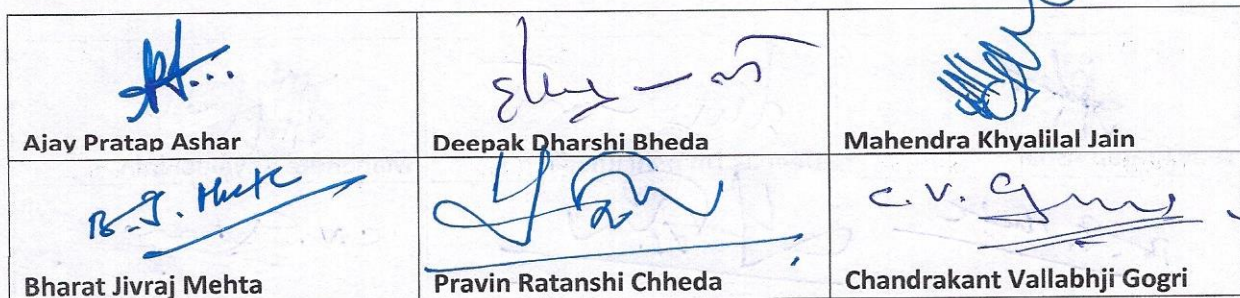 Ajay Pratap Ashar
Deepak Dharshi Bheda
Mahendra Khyalilal Jain
B.J. Mehta
C.V.
Bharat Jivraj Mehta
Pravin Ratanshi Chheda
Chandrakant Vallabhji Gogri